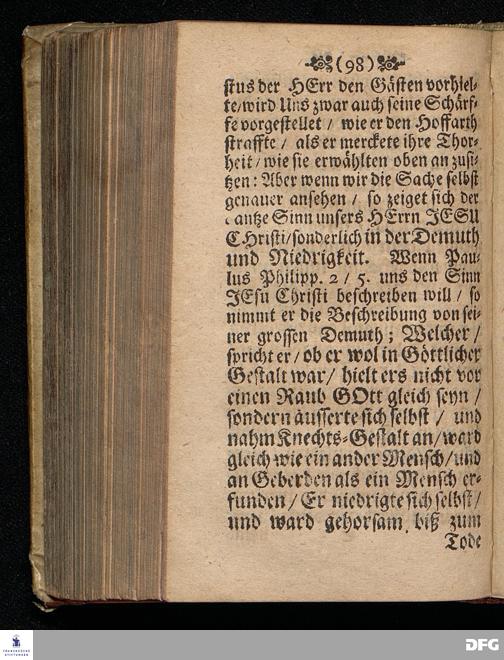 (98)
stus der HErr den Gästen vorhiel-
te/wird Uns zwar auch seine Schärf-
fe vorgestellet / wie er den Hoffarth
straffte / als er merckete ihre Thor-
heit/ wie sie erwählten oben an zusi-
tzen: Aber wenn wir die Sache selbst
genauer ansehen / so zeiget sich der
gantze Sinn unsers HErrn JESU
CHristi/sonderlich in der Demuth
und Niedrigkeit. Wenn Pau-
lus Philipp. 2 / 5. uns den Sinn
JEsu Christi beschreiben will / so
nimmt er die Beschreibung von sei-
ner grossen Demuth; Welcher /
spricht er / ob er wol in Göttlicher
Gestalt war/ hielt ers nicht vor
einen Raub GOtt gleich seyn /
sondern äusserte sich selbst / und
nahm Knechts-Gestalt an/ ward
gleich wie ein ander Mensch/und
an Geberden als ein Mensch er-
funden / Er niedrigte sich selbst/
und ward gehorsam, biß zum
Tode
FRANCKESCHE
STIFTUNGEN
DFG